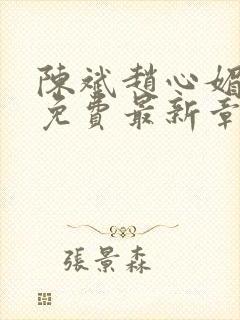 陳斌趙心媚
免費最新章
張景森